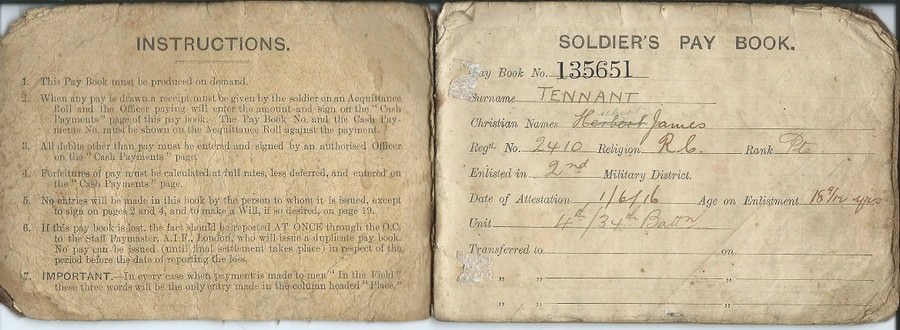 INSTRUCTIONS.
1. This Pay Book must be produced on demand.
2. When any pay is drawn a receipt must be given by the soldier on an Acquittance
Roll and the Officer paying will enter the amount and sign on the "Cash
Payments" page of this pay book. The Pay Book No. and the Cash Pay-
ments No. must be shown on the Acquittance Roll against the payment.
3. All debits other than pay must be entered and signed by an authorised Officer
on the "Cash Payments" page.
4. Forfeitures of pay must be calculated at full rates, less deferred, and entered on
the "Cash Payments" page.
5. No entries will be made in this book by the person to whom it is issued, except
to sign on pages 2 and 4, and to make a Will, if so desired, on page 19.
6. If this pay book is lost, the fact should be reported AT ONCE through the O.C.
to the Staff Paymaster, A.I.F., London, who will issue a duplicate pay book.
No pay can be issued (until final settlement takes place) in respect of the
period before the date of reporting the loss.
7. IMPORTANT.—In every case when payment is made to men "In the Field"
these three words will be the only entry made in the column headed "Place,"
SOLDIER'S PAY BOOK.
Pay Book No. 135651
Surname TENNANT
Christian Names Herbert James
Regtl. No. 2410 Religion R.C. Rank Pte
Enlisted in 2nd Military District.
Date of Attestation 1/6/16 Age on Enlistment 18 9/12 yrs
Unit 4th/34th Battn
Transferred to on
" " "
" " "